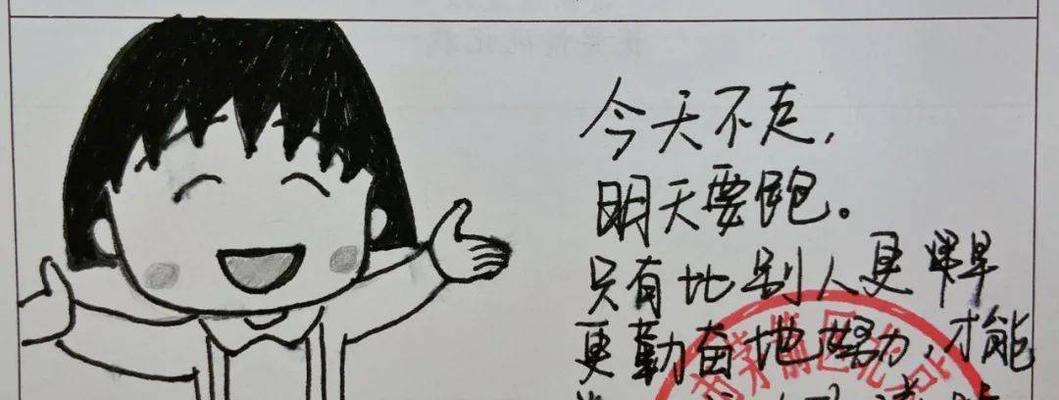 今天不走,
明天要跑。
只有比别人更早
更勤奋地努力,才能
茅箭区